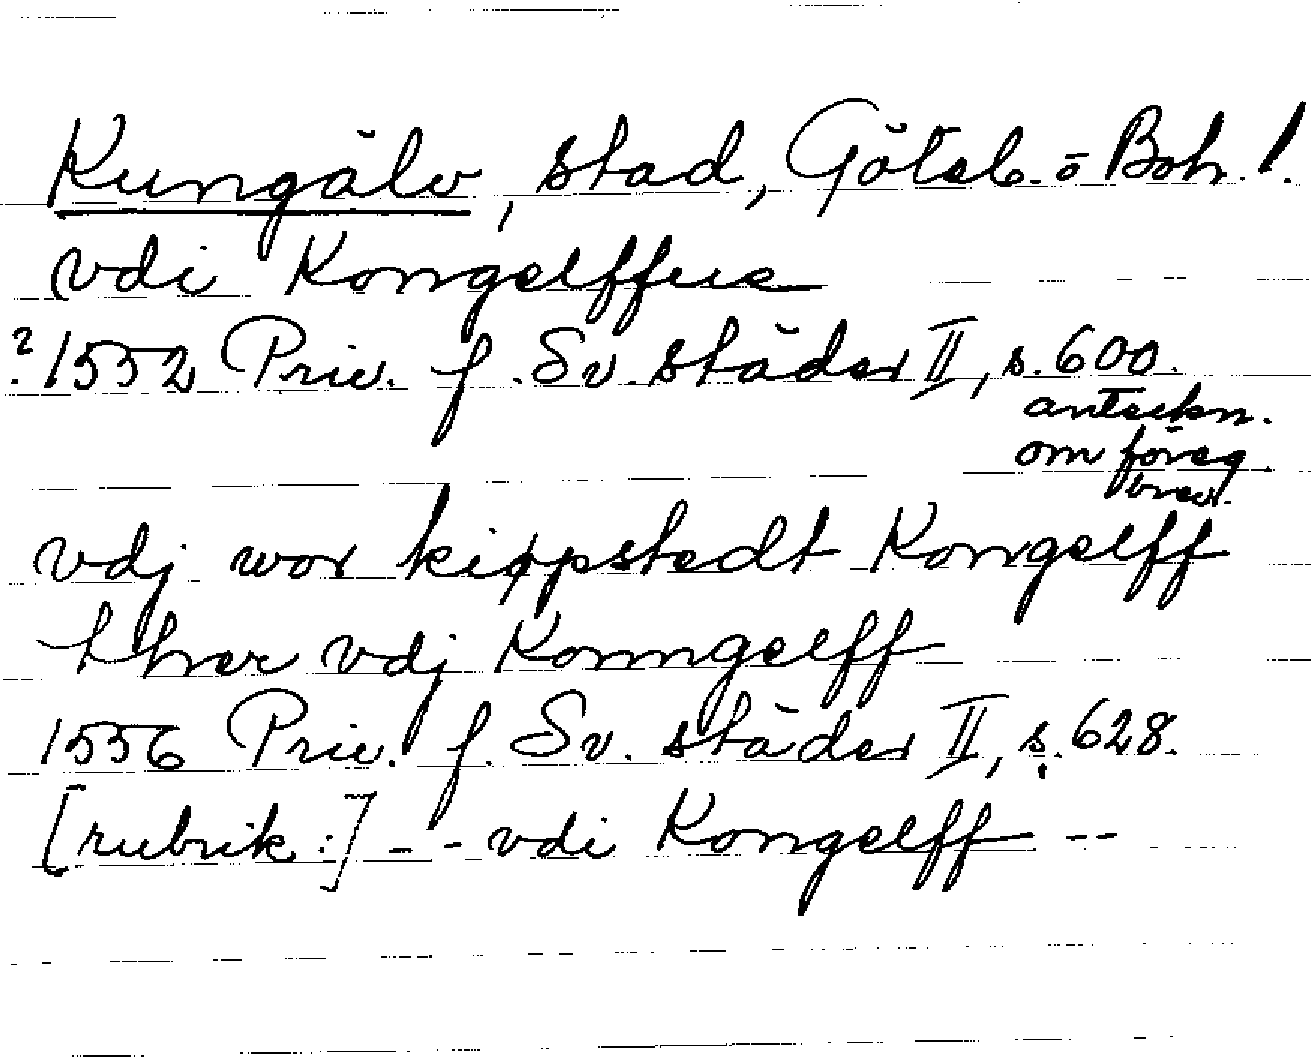 Kungälv, stad, Göteb. o Boh. l.
vdi Kongelffue
? 1552 Priv. f. Sv. städer II, s. 600.
anteckn.
om föreg.
brev.
vdj wor kippstedt Kongelff
hver vdj Konngelff
1556 Priv. f. Sv. städer II, s. 628.
[rubrik:] - - vdi Kongelff - -